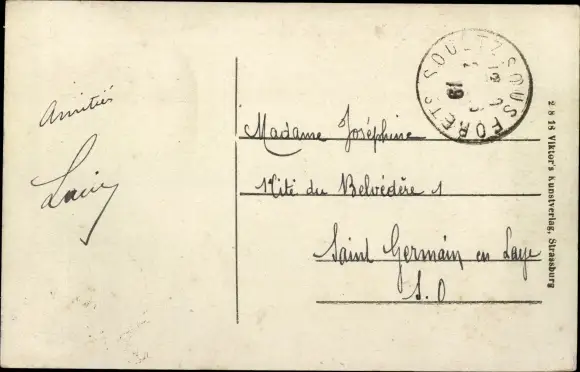 Amitiés
SOULTZ SOUS FORETS
19
Madame Joséphine
Cité du Belvédère 1
Saint Germain en Laye
S. O
2818 Viktor's Kunstverlag, Strassburg